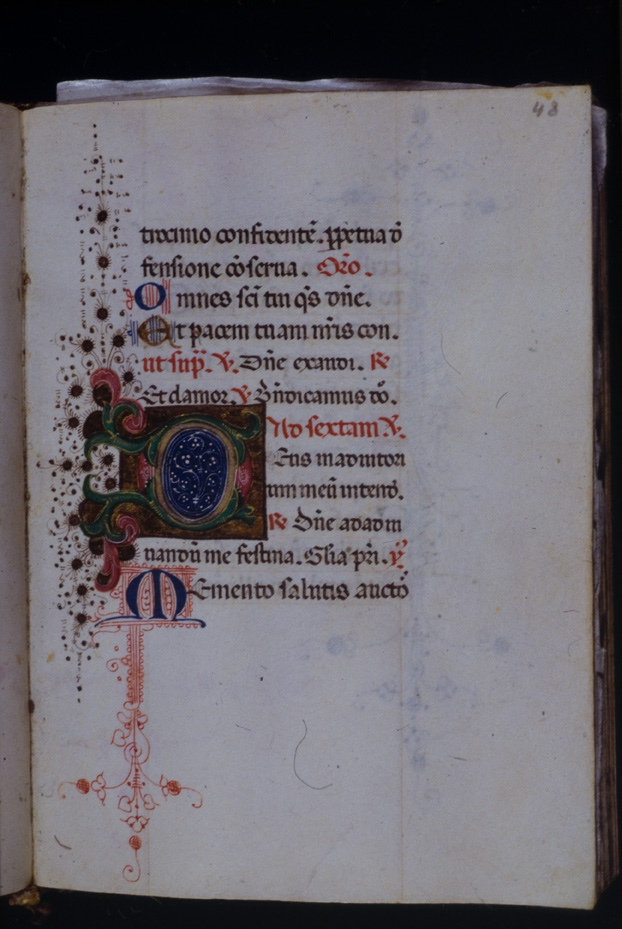 48
trocinio confidentē. ꝑpetua ď
fensione ꝯserua. Orō.
Omnes sc̄i tui qs̄ dn̄e.
Et pacem tuam nr̄is con.
ut sup̄. ℣. Dn̄e exaudi. ℟
Et clamor. ℣ Bn̄dicamus dō.
Ad sextam ℣.
Deus in adiutori
um meū intend̄.
℟ Dn̄e ad adiu
uandū me festina. Glīa pr̄i. ℣
Memento salutis auctō